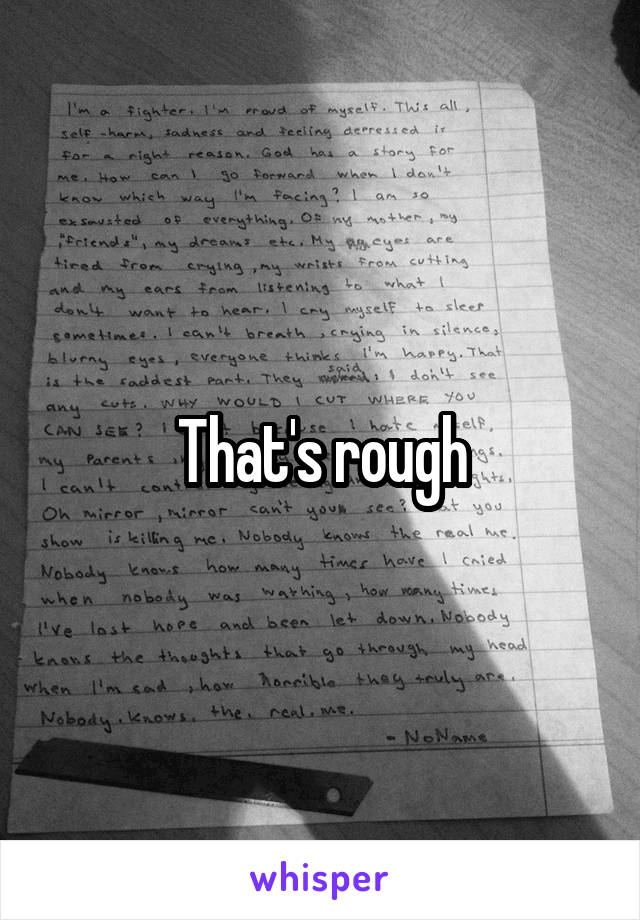 I'm a fighter. I'm proud of myself. This all,
self-harm, sadness and feeling depressed is
for a right reason. God has a story for
me. How can I go forward when I don't
know which way I'm facing? I am so
exsausted of everything. Of my mother, my
"friends", my dreams etc. My eyes are
tired from crying, my wrists from cutting
and my ears from listening to what I
don't want to hear. I cry myself to sleep
sometimes. I can't breath, crying in silence,
blurny eyes, everyone thinks I'm happy. That
is the saddest part. They said: I don't see
any cuts. WHY WOULD I CUT WHERE YOU
CAN SEE? I hate
That's rough
my parents
I can't
Oh mirror, mirror can't you see? you
show is killing me. Nobody knows the real me.
Nobody knows how many times have I cried
when nobody was wathing, how many times
I've lost hope and been let down. Nobody
knows the thoughts that go through my head
when I'm sad, how horrible they truly are.
Nobody. knows. the. real. me.
- NoName
whisper